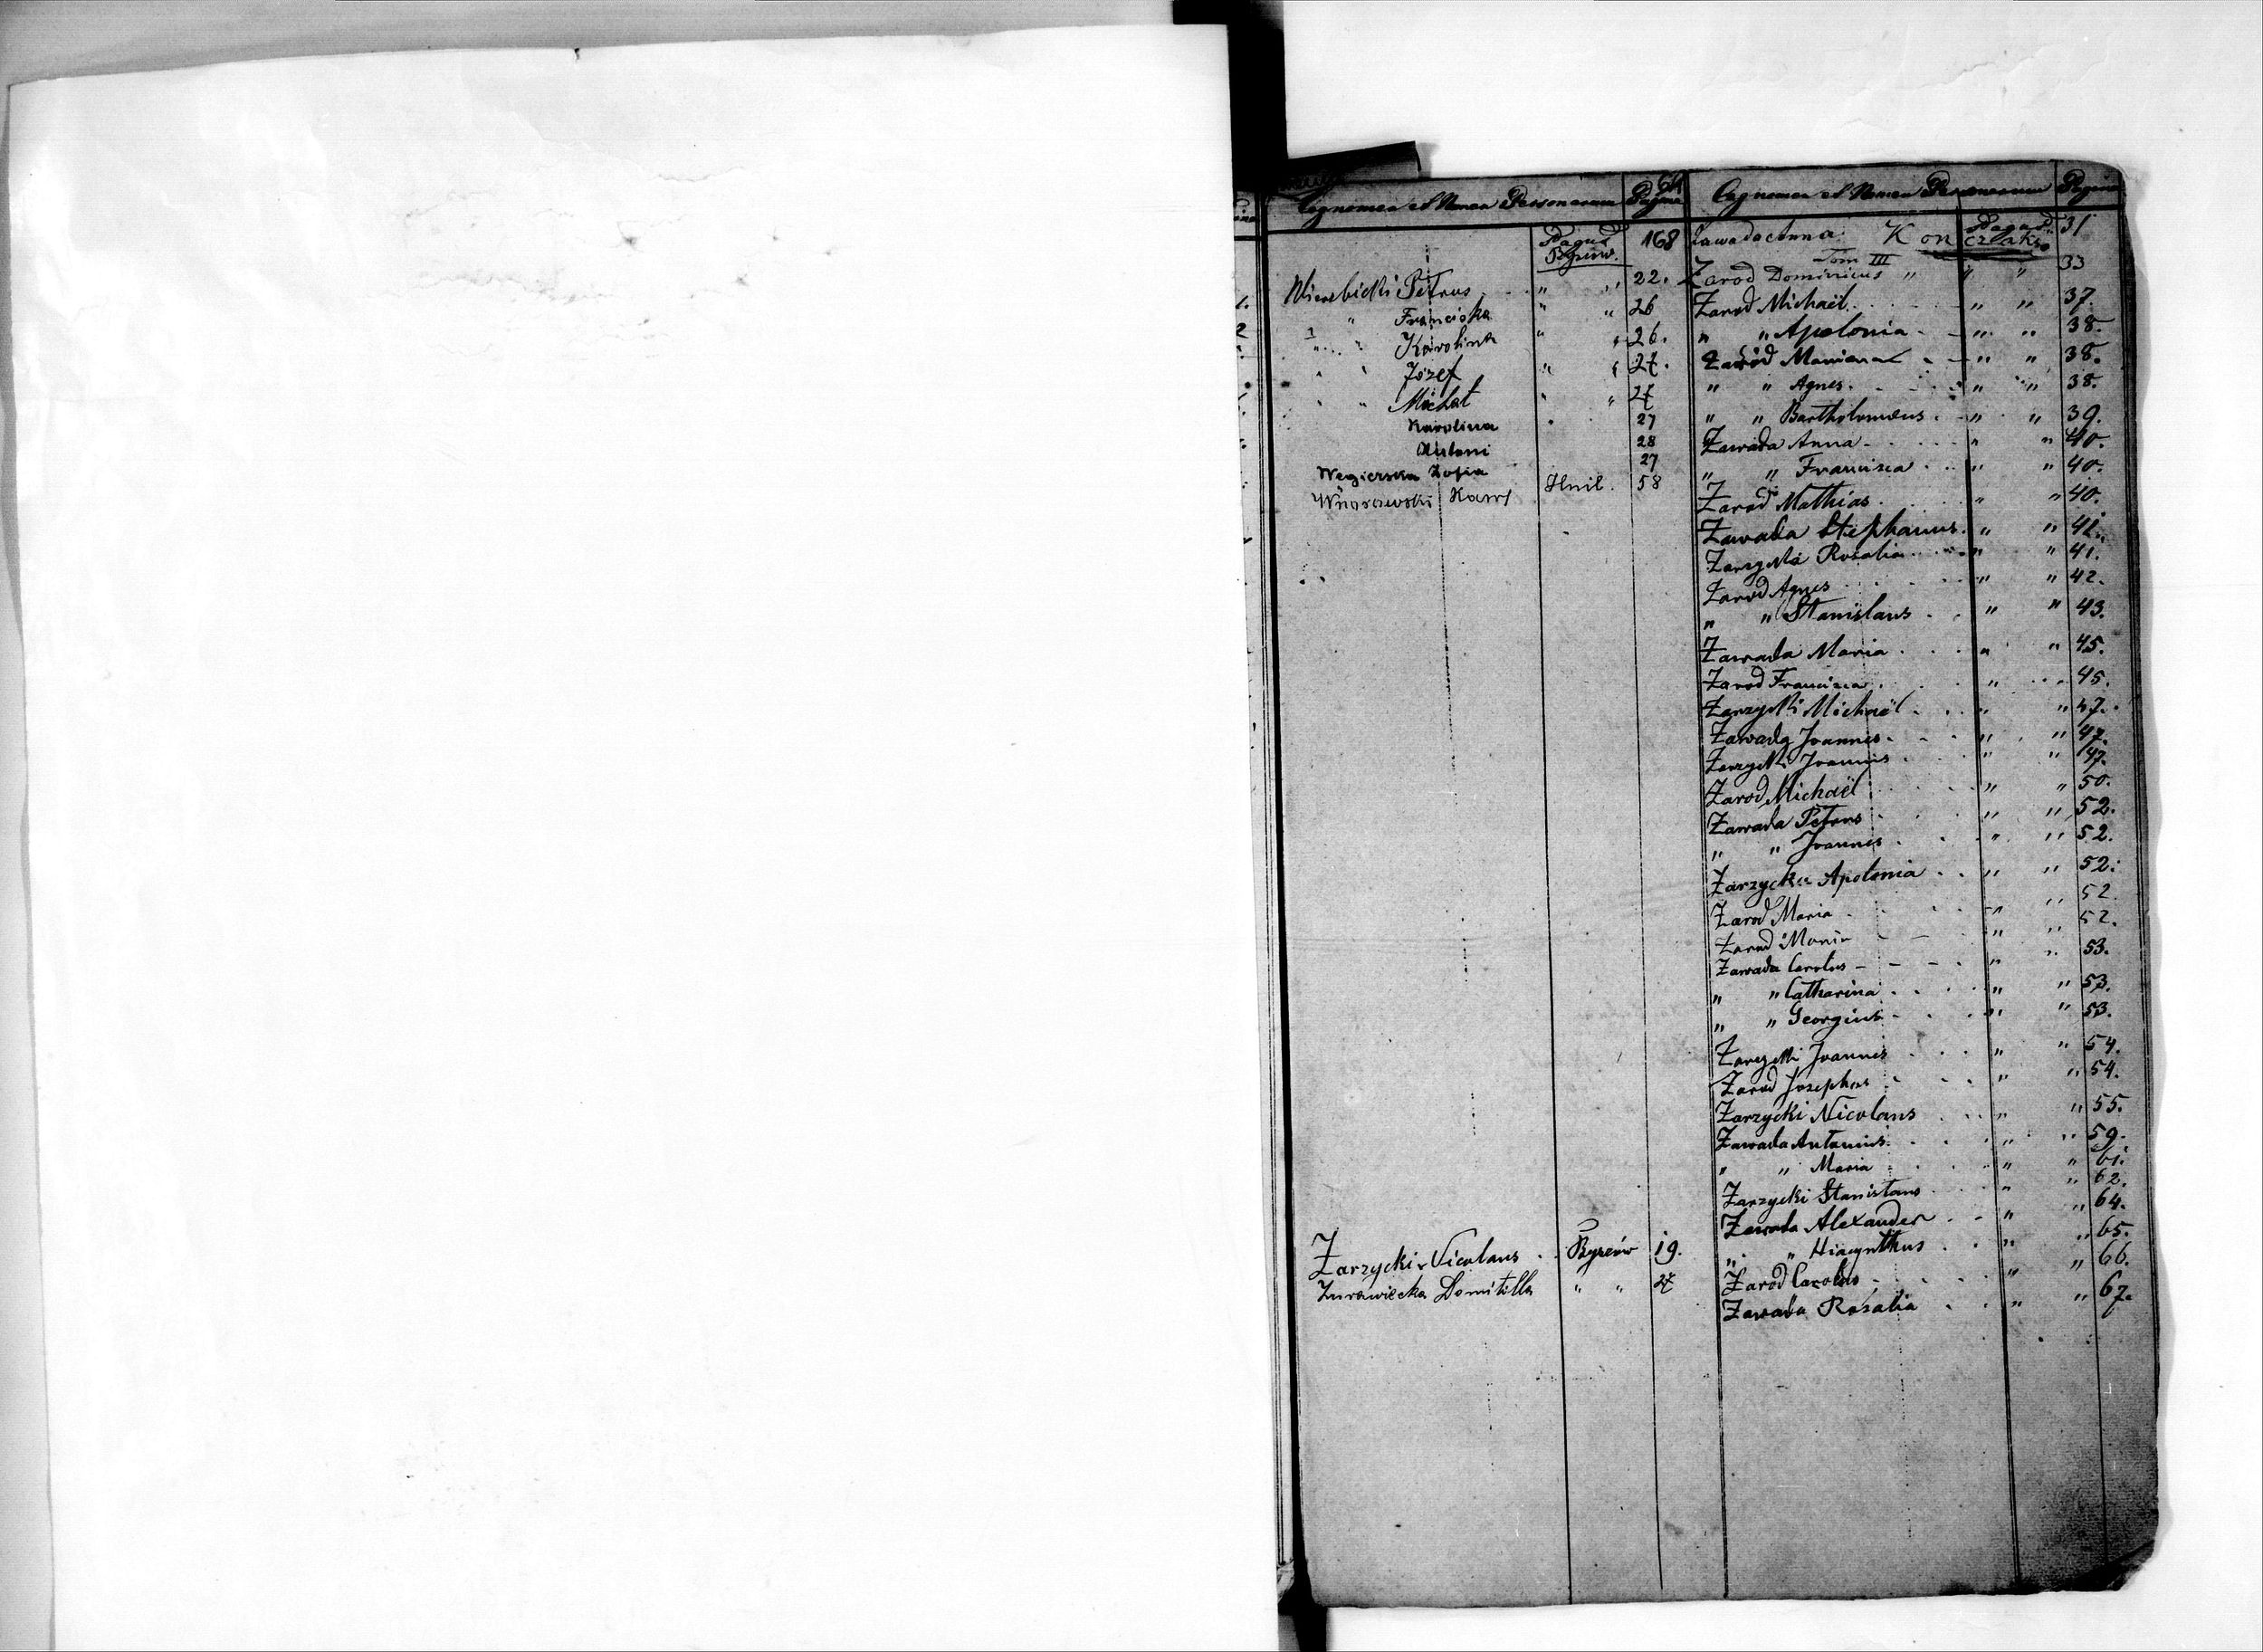 64
Cognomen et Nomen Personarum Pagina
Pagus 168
Byszów.
Wierzbicki Petrus " " 22.
" Franciska " " 26
" " Karolina " " 26.
" " Józef " " 27.
" " Michał " " 27
Karolina " 27
Antoni 28
Węgierska Zofia 27
Karol Hnil. 58
Zarzycki Nicolaus . . Byszów 19.
Żurawiecka Domitilla " " 27
Cognomen et Nomen Personarum Pagina
Zawada Anna Kończaki Pagus 31
Tom III
Zarod Dominicus " " " 33
Zarod Michaël . . . " " 37.
" " Apolonia - - " " 38.
Zaród Mariana - - " " 38.
" " Agnes. - " " 38.
" " Bartholomæus . - " " 39.
Zawada Anna - . . . " " 40.
" " Francisca . . " " 40.
Zarod Mathias . " " 40.
Zawada Stephanus. " " 41.
Zarzycka Rosalia . . . " " 41.
Zarod Agnes . . . " " 42.
" " Stanislaus . . " " 43.
Zawada Maria . . . " " 45.
Zarod Francisca . . . " " 45.
Zarzycki Michaël . . . " " 47.
Zawada Joannes . - . " " 47.
Zarzycki Joannes . . " " 47.
Zarod Michaël . . . " " 50.
Zawada Petrus . . . " " 52.
" " Joannes . . . " " 52.
Zarzycka Apolonia . . " " 52.
Zarod Maria . . . " " 52.
Zarod Maria - - . " " 52.
Zawada Carolus - - - . " " 53.
" " Catharina . . . " " 53.
" " Georgius . . . " " 53.
Zarzycki Joannes . . . " " 54.
Zarod Josephus . . . " " 54.
Zarzycki Nicolaus . . . " " 55.
Zawada Antonius . . . " " 59.
" " Maria . . . " " 61.
Zarzycki Stanislaus . . " " 62.
Zawada Alexander . - " " 64.
" " Hiacynthus . . " " 65.
Zarod Carolus . . . " " 66.
Zawada Rosalia . . " " 67.